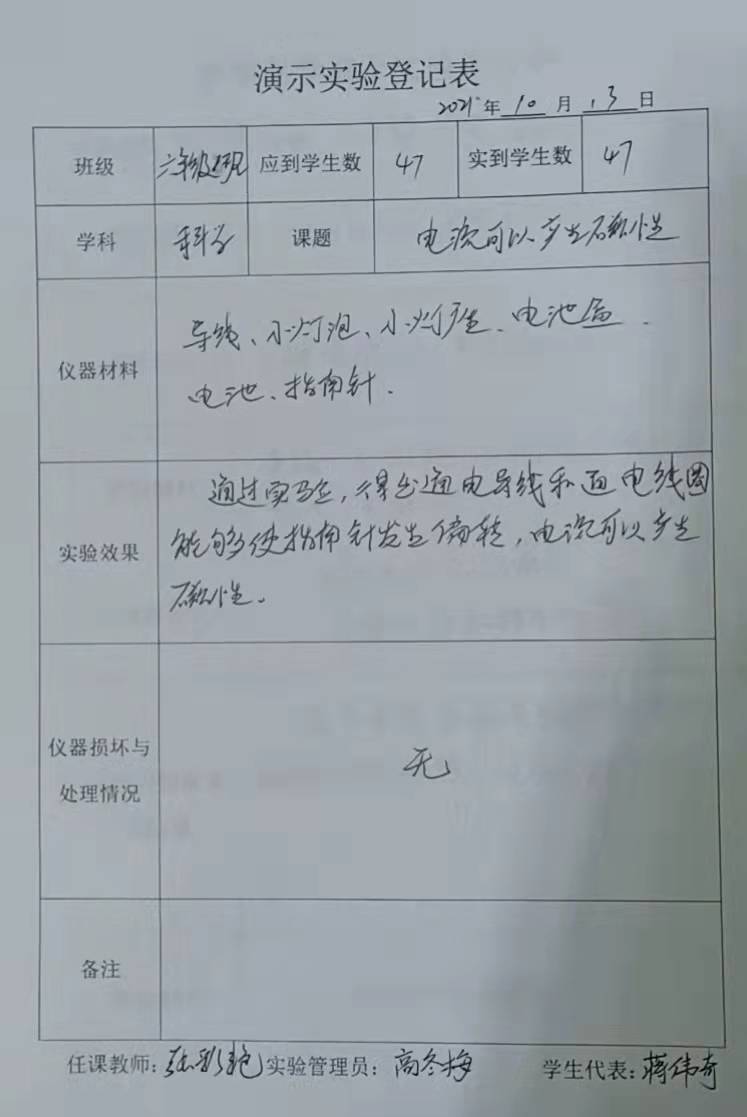 演示实验登记表
2021年 10 月 13 日
班级 六年级 应到学生数 47 实到学生数 47
学科 科学 课题 电流可以产生磁性
仪器材料
导线、小灯泡、小灯座、电池盒、
电池、指南针.
实验效果
通过实验,得出通电导线和通电线圈
能够使指南针发生偏转,电流可以产生
磁性。
仪器损坏与
处理情况
无
备注
任课教师: 实验管理员: 高冬梅 学生代表: 蒋伟奇